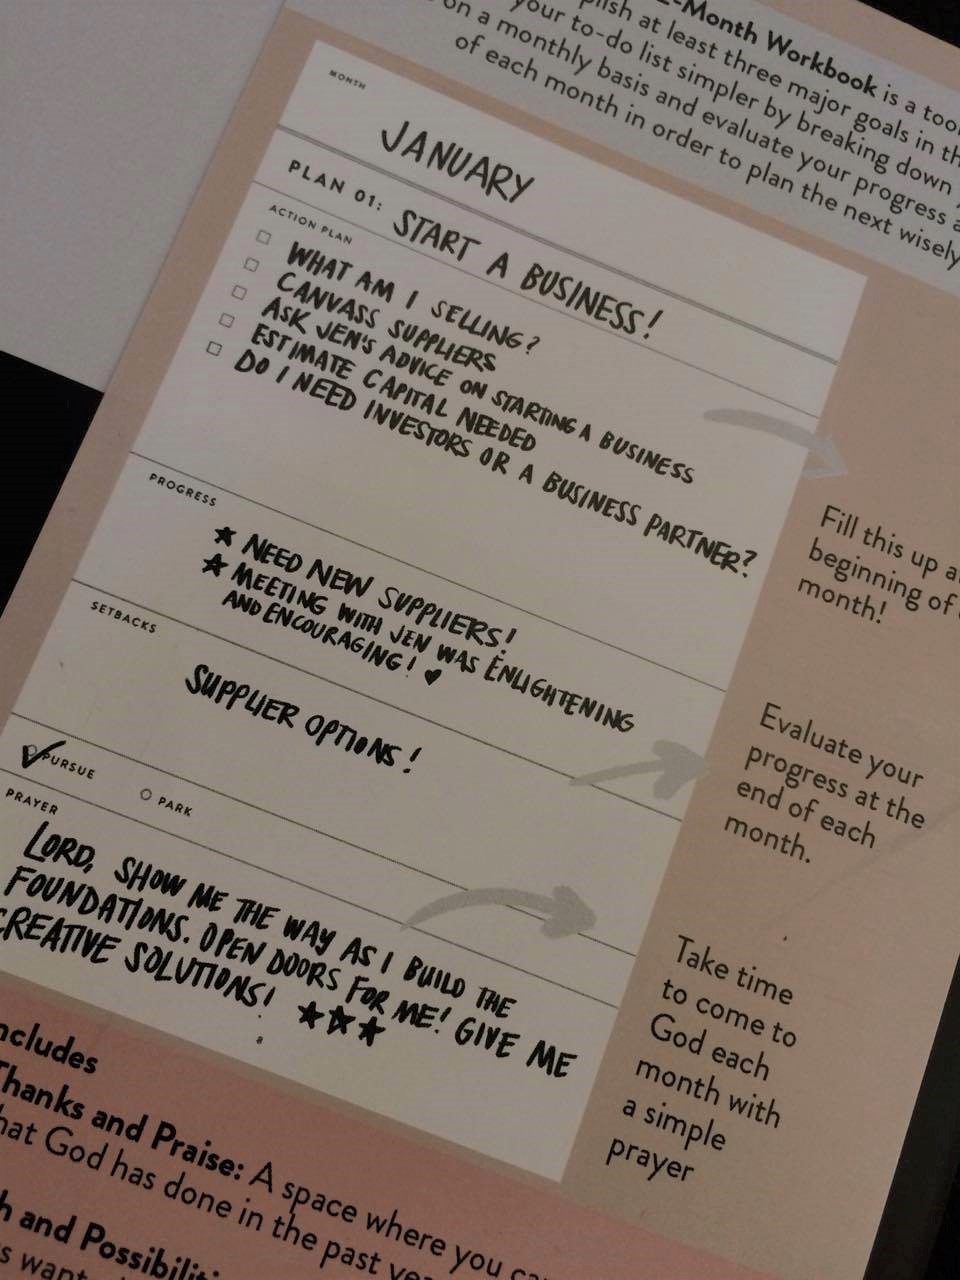 -Month Workbook is a tool
plish at least three major goals in th
your to-do list simpler by breaking down
on a monthly basis and evaluate your progress a
of each month in order to plan the next wisely
MONTH
JANUARY
PLAN 01: START A BUSINESS!
ACTION PLAN
WHAT AM I SELLING?
CANVASS SUPPLIERS
ASK JEN'S ADVICE ON STARTING A BUSINESS
ESTIMATE CAPITAL NEEDED
DO I NEED INVESTORS OR A BUSINESS PARTNER?
Fill this up a
beginning of
month!
PROGRESS
★ NEED NEW SUPPLIERS!
★ MEETING WITH JEN WAS ENLIGHTENING
AND ENCOURAGING! ♥
Evaluate your
progress at the
end of each
month.
SETBACKS
SUPPLIER OPTIONS!
PURSUE
PARK
PRAYER
LORD, SHOW ME THE WAY AS I BUILD THE
FOUNDATIONS. OPEN DOORS FOR ME! GIVE ME
CREATIVE SOLUTIONS! ★★★
Take time
to come to
God each
month with
a simple
prayer
ncludes
Thanks and Praise: A space where you ca
hat God has done in the past ye
h and Possibiliti
s want